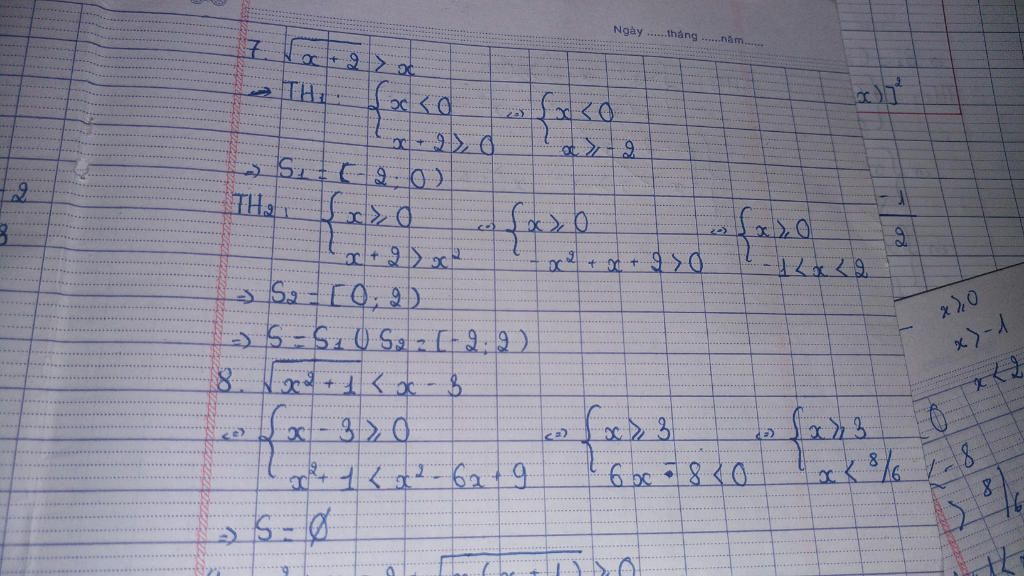 Ngày ......tháng ......năm......
7. √(x + 2) > x
→ TH1: { x < 0 ⇔ { x < 0
x + 2 ≥ 0 x ≥ -2
⇒ S1 = [-2; 0)
TH2: { x ≥ 0 ⇔ { x ≥ 0 ⇔ { x ≥ 0
x + 2 > x² -x² + x + 2 > 0 -1 < x < 2
⇒ S2 = [0; 2)
⇒ S = S1 ∪ S2 = [-2; 2)
8. √(x² + 1) < x - 3
⇔ { x - 3 ≥ 0 ⇔ { x ≥ 3 ⇔ { x ≥ 3
x² + 1 < x² - 6x + 9 6x - 8 < 0 x < 8/6
⇒ S = ∅
x)]²
-1
2
x ≥ 0
x > -1
x < 2
< -8
8/6